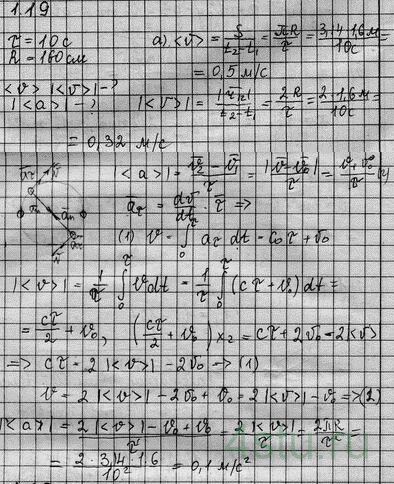 1.19
τ = 10 c
R = 160 см
<v> |<v>| - ?
|<a>| - ?
a) <v> = S/(t₂-t₁) = πR/τ = 3,14·1,6 м/10c =
= 0,5 м/с
|<v>| = |r₁₂|/(t₂-t₁) = 2R/τ = 2·1,6 м/10c =
= 0,32 м/с
|<a>| = (v̄₂ - v̄₁)/τ = |v̄ - v̄₀|/τ = (v + v₀)/τ (2)
ā_τ = dv̄/dt · τ̄ =>
(1) v = ∫₀^τ a_τ dt = cτ + v₀
|<v>| = 1/τ ∫₀^τ v dt = 1/τ ∫₀^τ (cτ + v₀) dt =
= cτ/2 + v₀, (cτ/2 + v₀) ×2 = cτ + 2v₀ = 2|<v>|
=> cτ = 2|<v>| - 2v₀ -> (1)
v = 2|<v>| - 2v₀ + v₀ = 2|<v>| - v₀ => (2)
|<a>| = (2|<v>| - v₀ + v₀)/τ = 2|<v>|/τ = 2πR/τ² =
= 2·3,14·1,6/10² = 0,1 м/с²